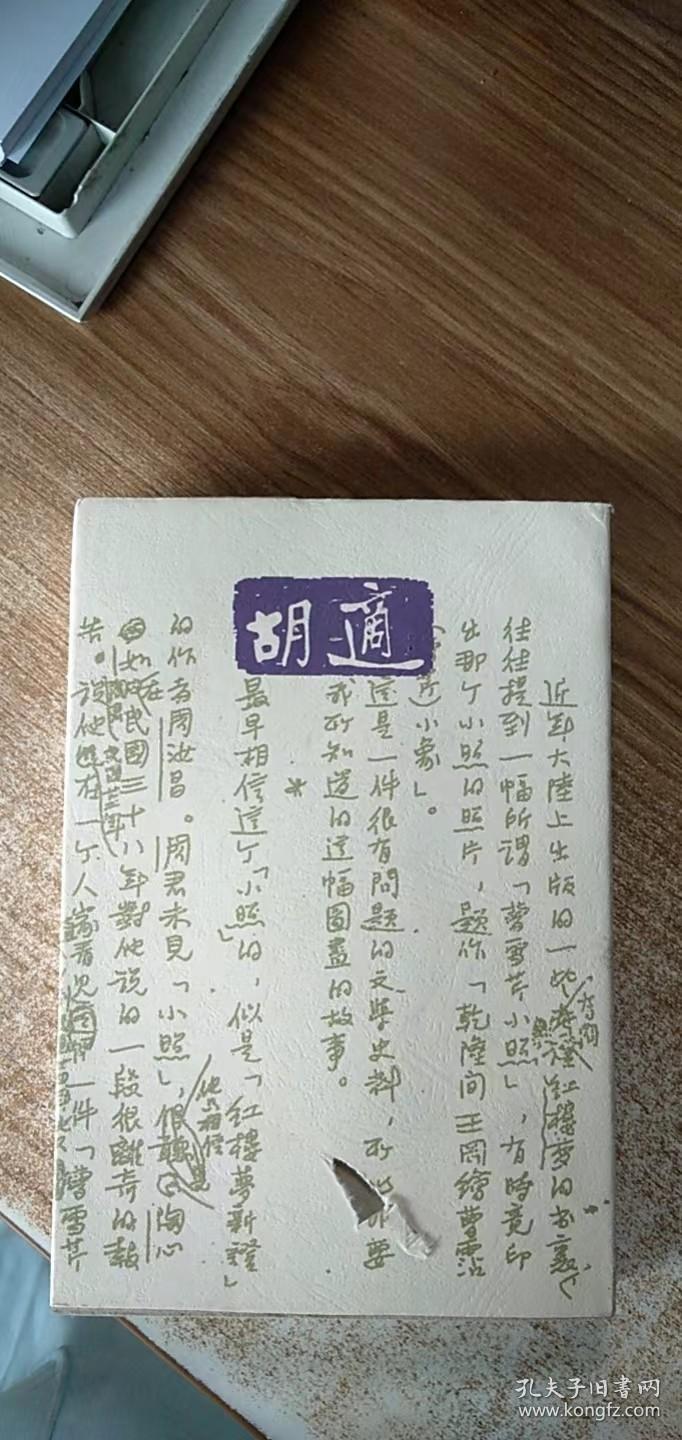 胡適
近年大陸上出版的一些紅樓夢的書裏
往往提到一幅所謂「曹雪芹小照」，有時竟印
出那个小照的照片，題作「乾隆間王岡繪曹霑
芹）小象」。
這是一件很有問題的文學史料，所以要
我所知道的這幅圖畫的故事。
*
最早相信這个「小照」的，似是「紅樓夢新證」
的作者周汝昌。周君未見「小照」，他相信陶心
如在民國三十八年對他說的一段很離奇的報
告。說他在一个人家看一件「曹雪芹
孔夫子旧书网
www.kongfz.com